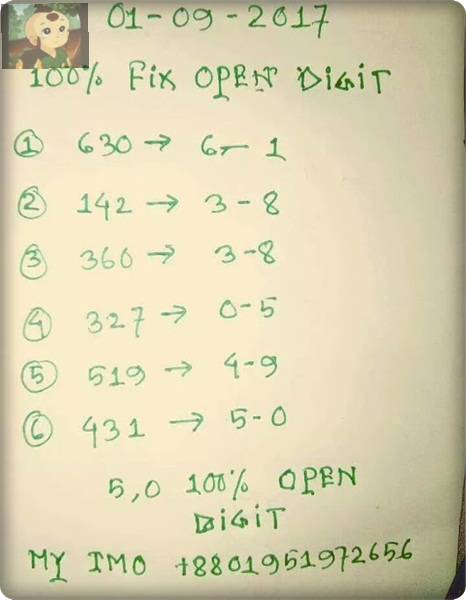 01-09-2017
100% Fix OPEN DiGiT
① 630 → 6-1
② 142 → 3-8
③ 360 → 3-8
④ 327 → 0-5
⑤ 519 → 4-9
⑥ 431 → 5-0
5,0 100% OPEN
DiGiT
MY IMO +8801951972656